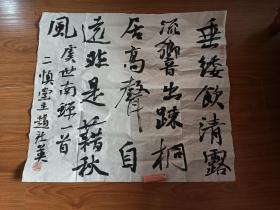 垂緌飲清露
流響出踈桐
居高聲自
遠非是藉秋
風 虞世南蟬一首
二慎堂主趙